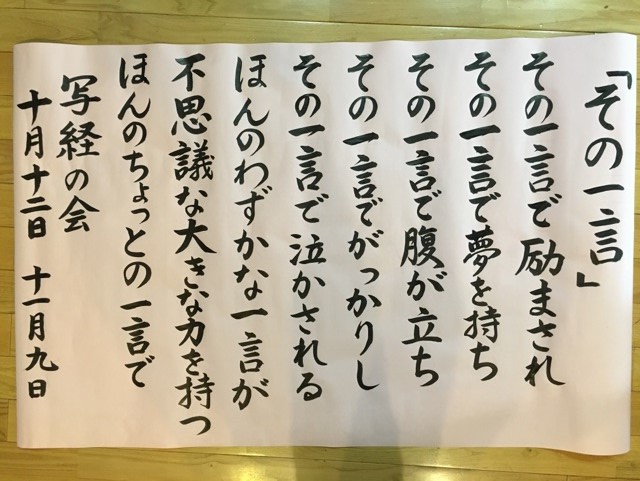 「その一言」
その一言で励まされ
その一言で夢を持ち
その一言で腹が立ち
その一言でがっかりし
その一言で泣かされる
ほんのわずかな一言が
不思議な大きな力を持つ
ほんのちょっとの一言で
写経の会
十月十二日 十一月九日